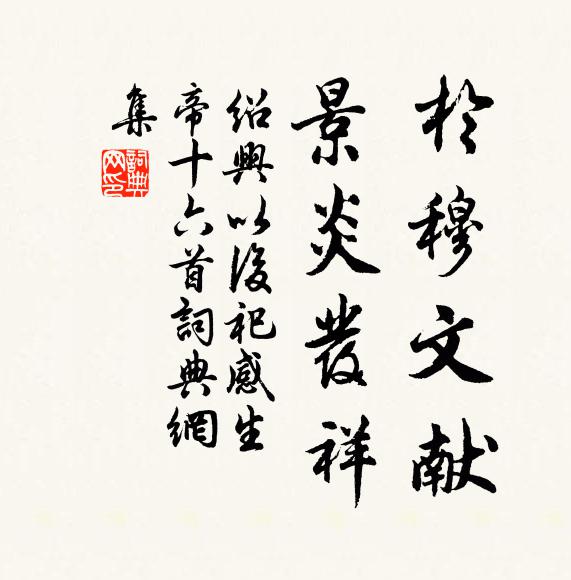 於穆文献
景炎發祥
紹興以後祀感生
帝十六首詞典網
集
詞典
网印